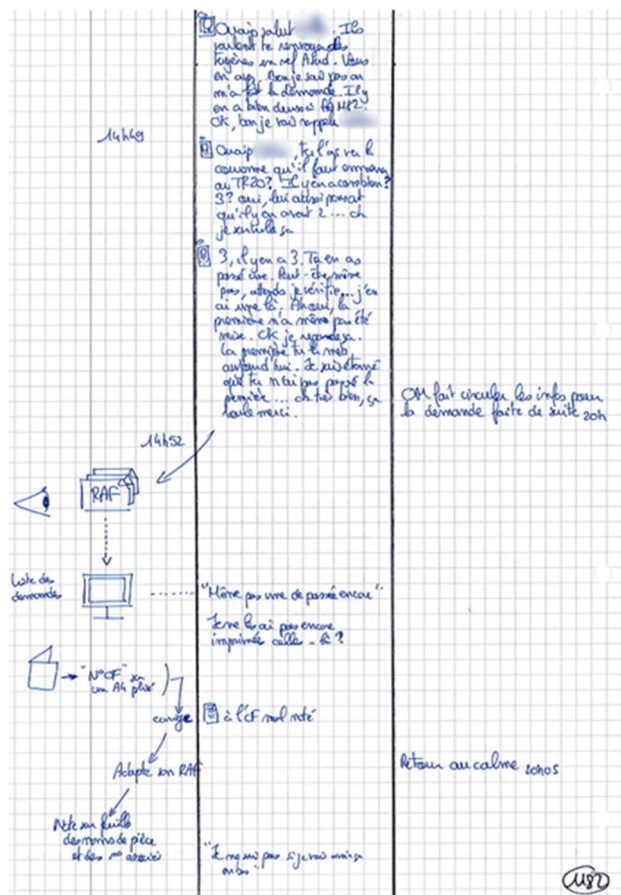 Ouaip salut
. Ils
veulent te renvoyer des
tuyères en ref
Vous
en avez. Bon je sais pas on
m'a fait la demande. Il y
en a bien
OK, bon je vais rappeler
14h49
Ouaip
, tu l'as vu la
couronne qu'il faut emmener
au TR20? Il y en a combien?
3? oui, lui aussi pensait
qu'il y en avait 2 ... ok
je contrôle ça
3, il y en a 3. Ta en as
passé une. Peut-être même
pas, attends je vérifie... j'en
ai une là. Ah oui, la
première n'a même pas été
mise. OK je regarde ça.
La première tu la mets
aujourd'hui. Je suis étonné
que tu n'ai pas passé la
première ... ok très bien, ça
roule merci.
OM fait circuler les infos pour
la demande faite de suite 20h
14h52
RAF
Liste des
demandes
"Même pas une de passée encore"
Je ne les ai pas encore
imprimée celle-là?
"N°OF" sur
un A4 plié
corrige
à l'OF mal noté
Adapte son RAF
Retour au calme 20h05
Note sur feuille
des noms de pièce
et des n° associés
"Je ne sais pas si je vais
1182